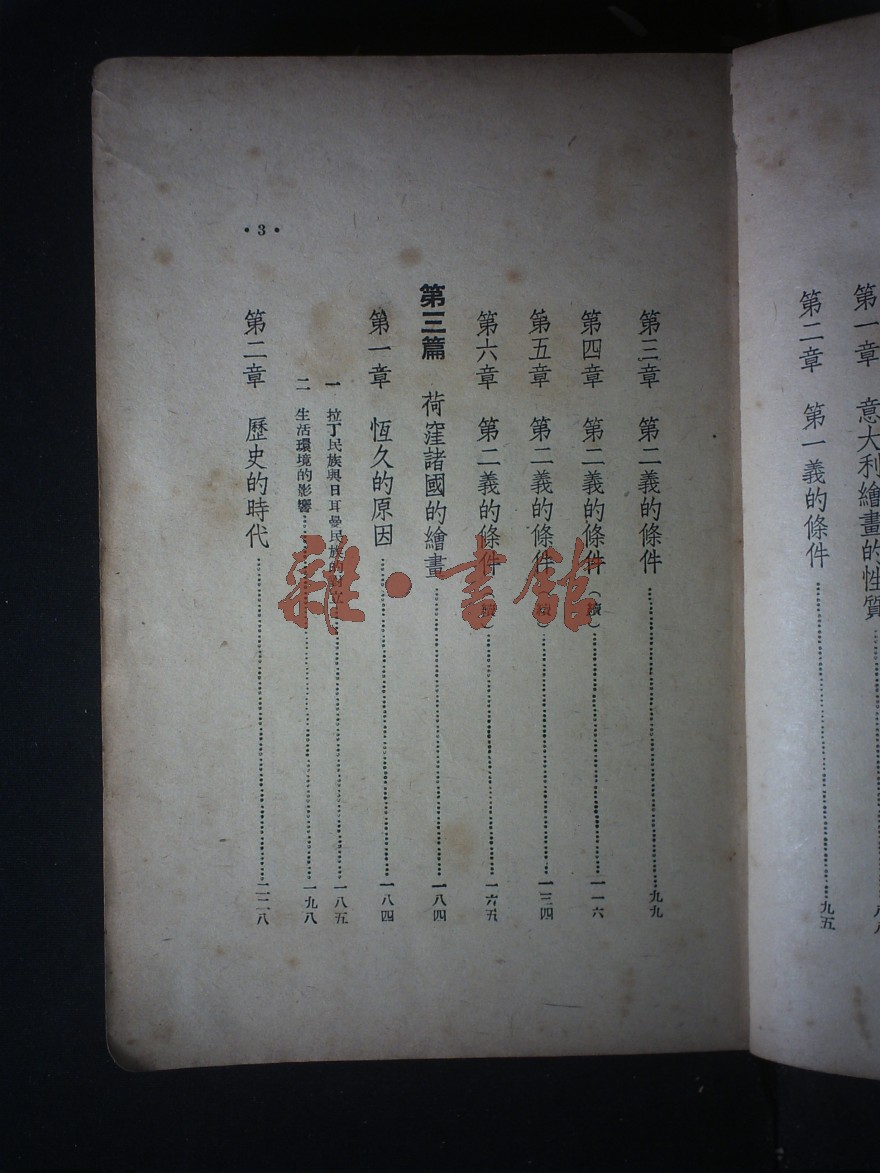 第一章 意大利繪畫的性質
第二章 第一義的條件 九五
第三章 第二義的條件 九九
第四章 第二義的條件（續） 一一六
第五章 第二義的條件（續） 一三四
第六章 第二義的條件（續） 一六五
第三篇 荷窪諸國的繪畫 一八四
第一章 恆久的原因 一八四
一 拉丁民族與日耳曼民族的對立 一八五
二 生活環境的影響 一九八
第二章 歷史的時代 二二八
• 3 •
雜·書館